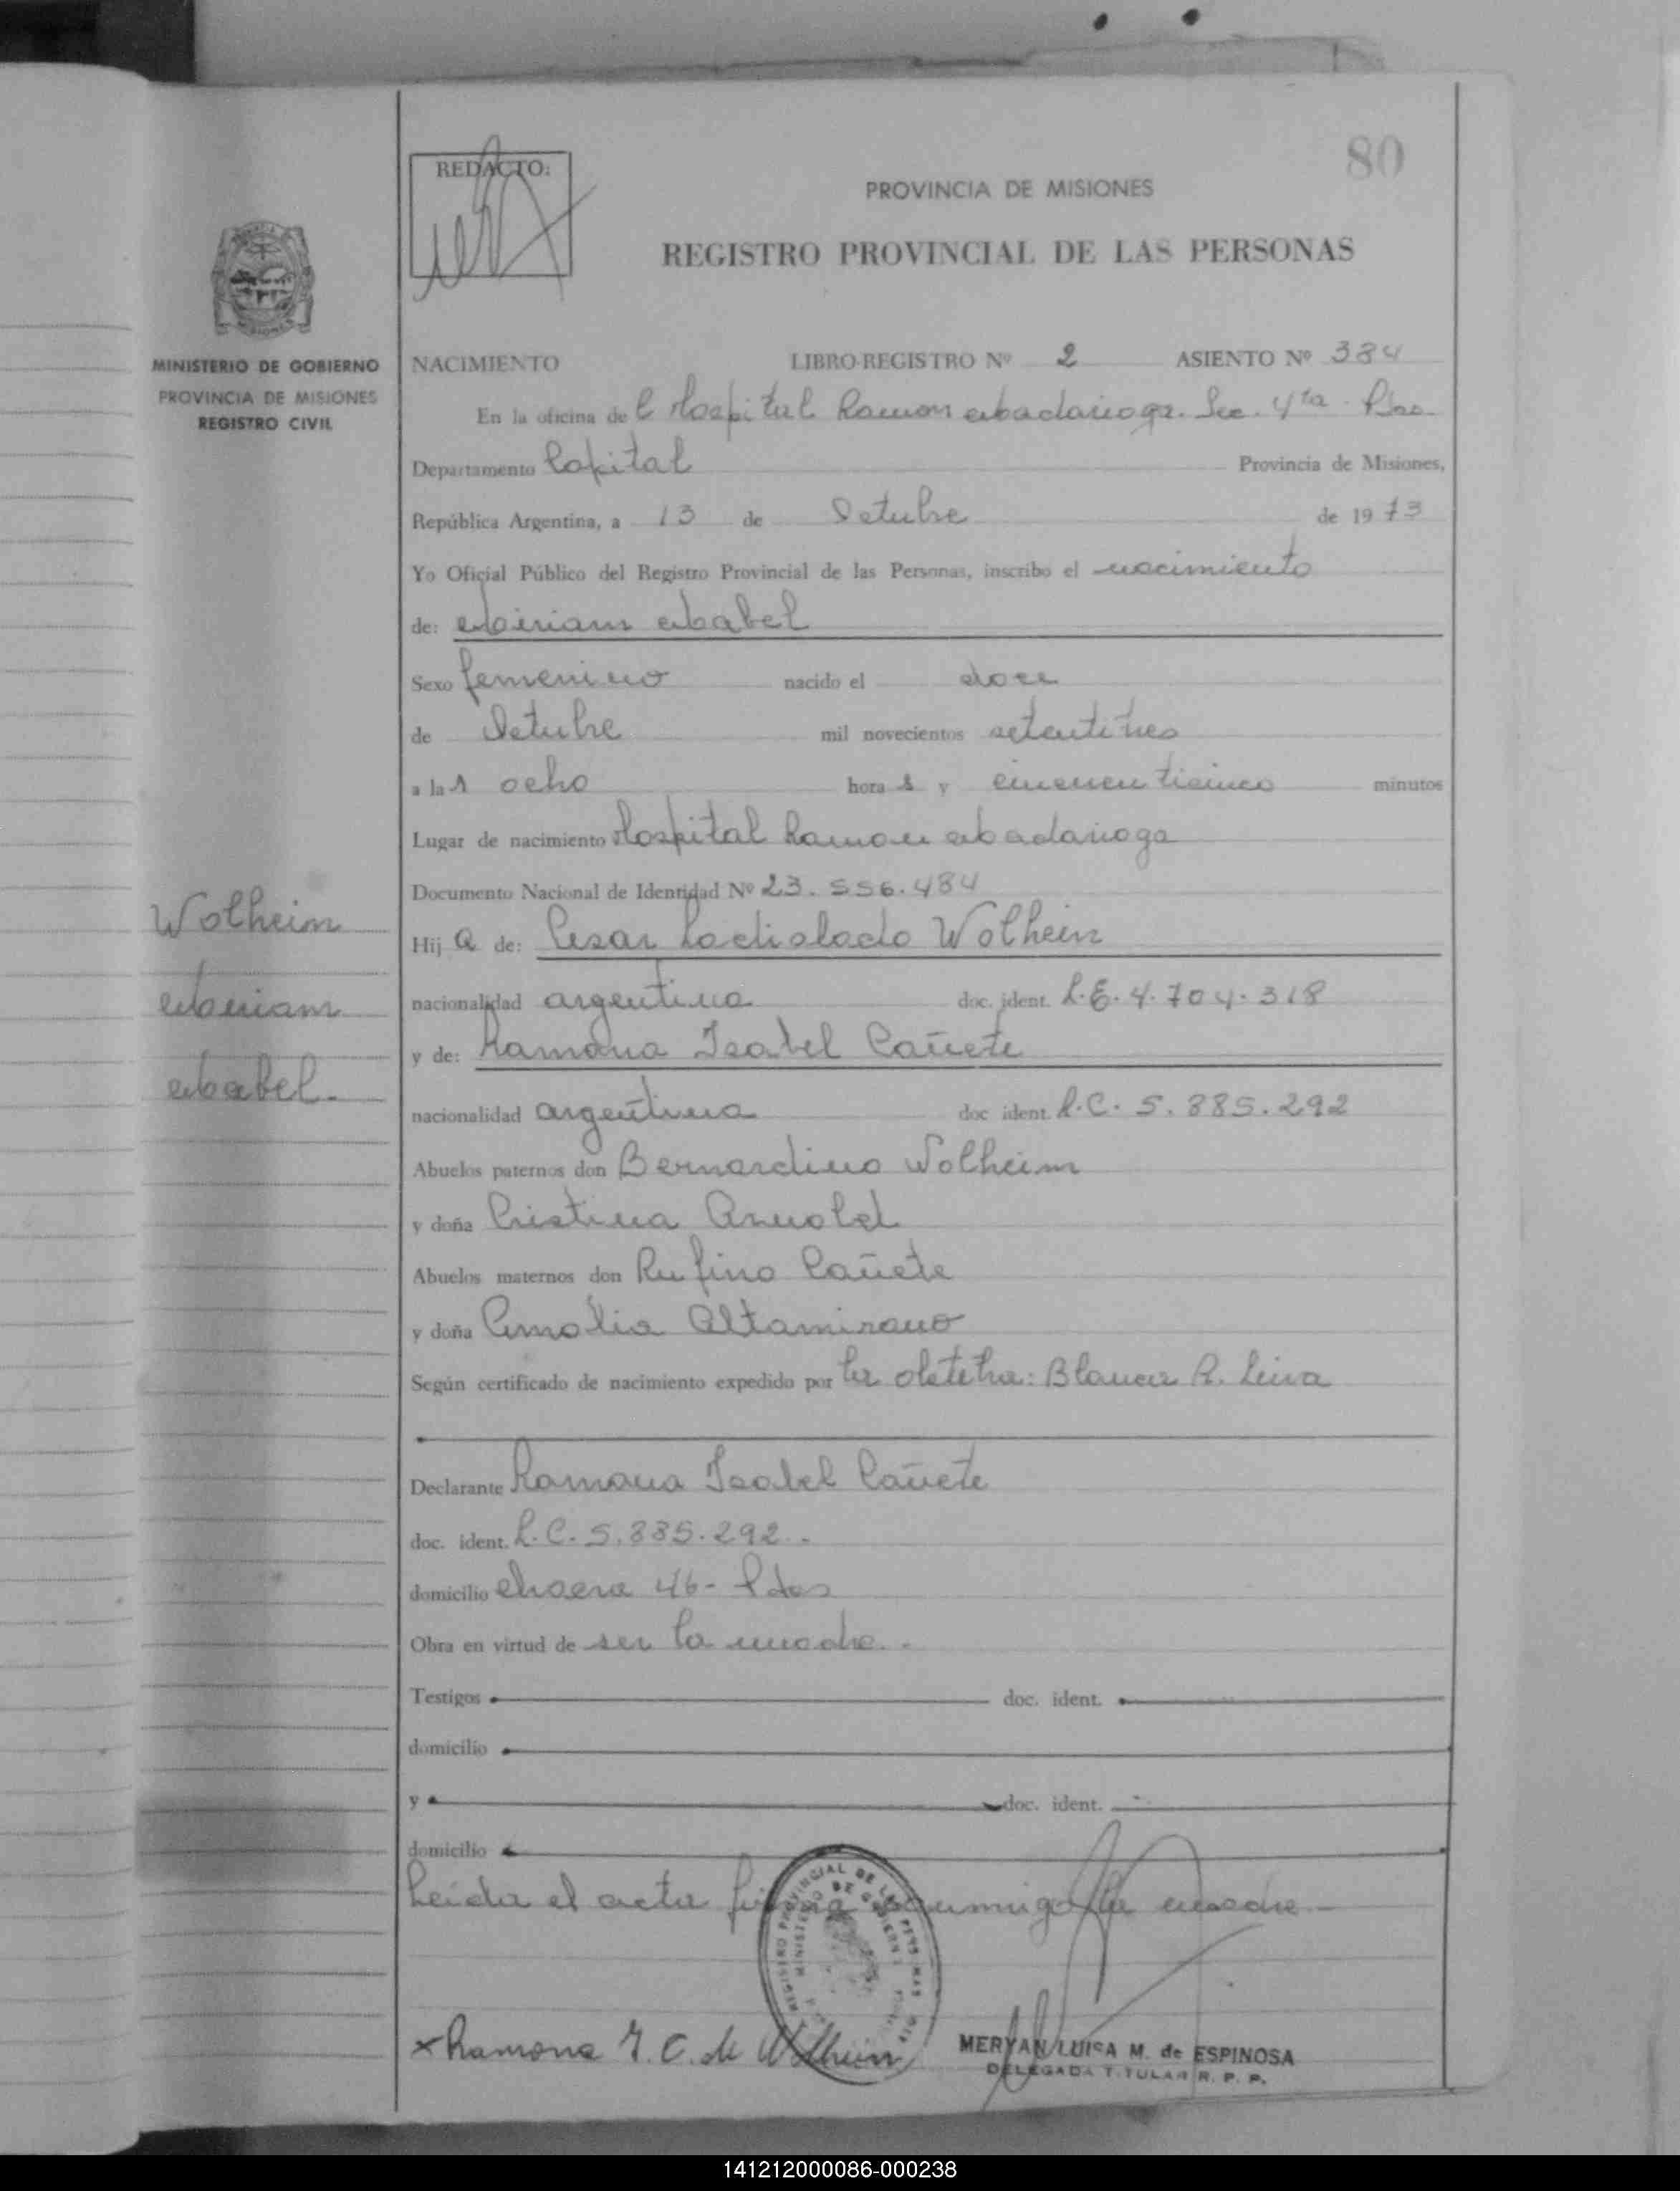 80
REDACTO:
PROVINCIA DE MISIONES
REGISTRO PROVINCIAL DE LAS PERSONAS
MINISTERIO DE GOBIERNO
PROVINCIA DE MISIONES
REGISTRO CIVIL
NACIMIENTO LIBRO-REGISTRO Nº 2 ASIENTO Nº 384
En la oficina de l Hospital Ramon Madariaga. Sec. 4ta. Pdas
Departamento Capital Provincia de Misiones,
República Argentina, a 13 de Octubre de 1973
Yo Oficial Público del Registro Provincial de las Personas, inscribo el nacimiento
de: Miriam Mabel
Sexo femenino nacido el doce
de Octubre mil novecientos setentitres
a las ocho horas y cincuenticinco minutos
Lugar de nacimiento Hospital Ramon Madariaga
Documento Nacional de Identidad Nº 23.556.484
Wolhein
Miriam
Mabel.
Hija de: Cesar Ladislado Wolhein
nacionalidad argentina doc. ident. L.E. 4.704.318
y de: Ramona Isabel Cañete
nacionalidad argentina doc ident. L.C. 5.885.292
Abuelos paternos don Bernardino Wolheim
y doña Cristina Arnold
Abuelos maternos don Rufino Cañete
y doña Amalia Altamirano
Según certificado de nacimiento expedido por la obstetra: Blanca R. Leiva
Declarante Ramona Isabel Cañete
doc. ident. L.C. 5.885.292.-
domicilio chacra 46- Pdas
Obra en virtud de ser la madre.-
Testigos doc. ident.
domicilio
y doc. ident.
domicilio
Leida el acta firma conmigo la madre.-
REGISTRO PROVINCIAL DE LAS PERSONAS
MINISTERIO DE GOBIERNO
x Ramona I. C. de Wolhein
MERYAN LUISA M. de ESPINOSA
DELEGADA TITULAR R. P. P.
141212000086-000238